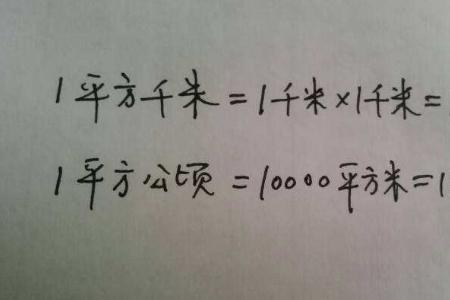 1平方千米=1千米×1千米=
1平方公顷=10000平方米=1